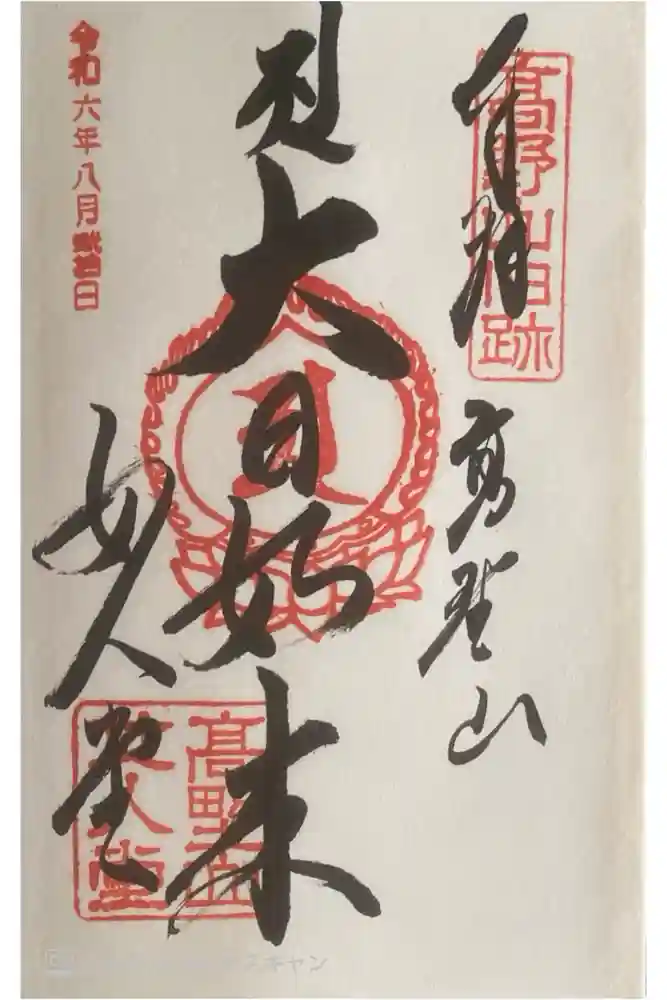 奉拝
高野山
大日如来
女人堂
令和六年八月弐拾日
高野山旧跡
高野山
女人堂
スキャン